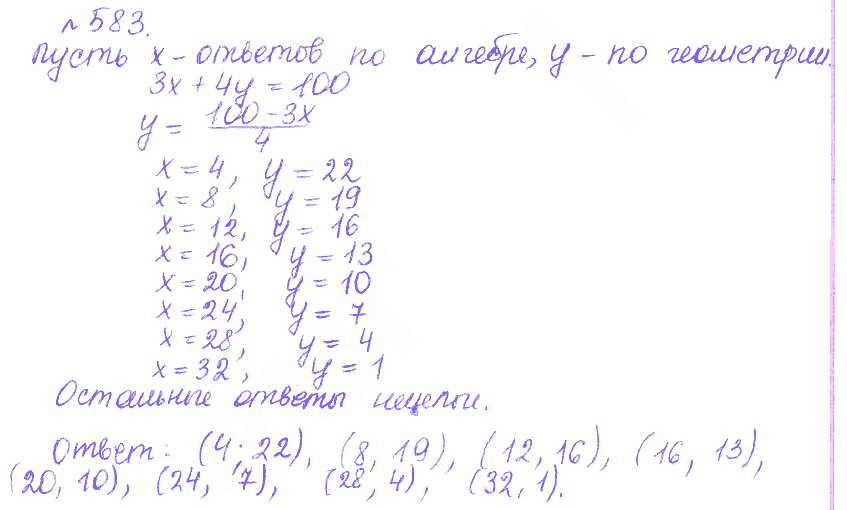 № 583.
Пусть x - ответов по алгебре, y - по геометрии.
3x + 4y = 100
y = \frac{100 - 3x}{4}
x = 4, y = 22
x = 8, y = 19
x = 12, y = 16
x = 16, y = 13
x = 20, y = 10
x = 24, y = 7
x = 28, y = 4
x = 32, y = 1
Остальные ответы нецелые.
Ответ: (4; 22), (8, 19), (12, 16), (16, 13),
(20, 10), (24, 7), (28, 4), (32, 1).